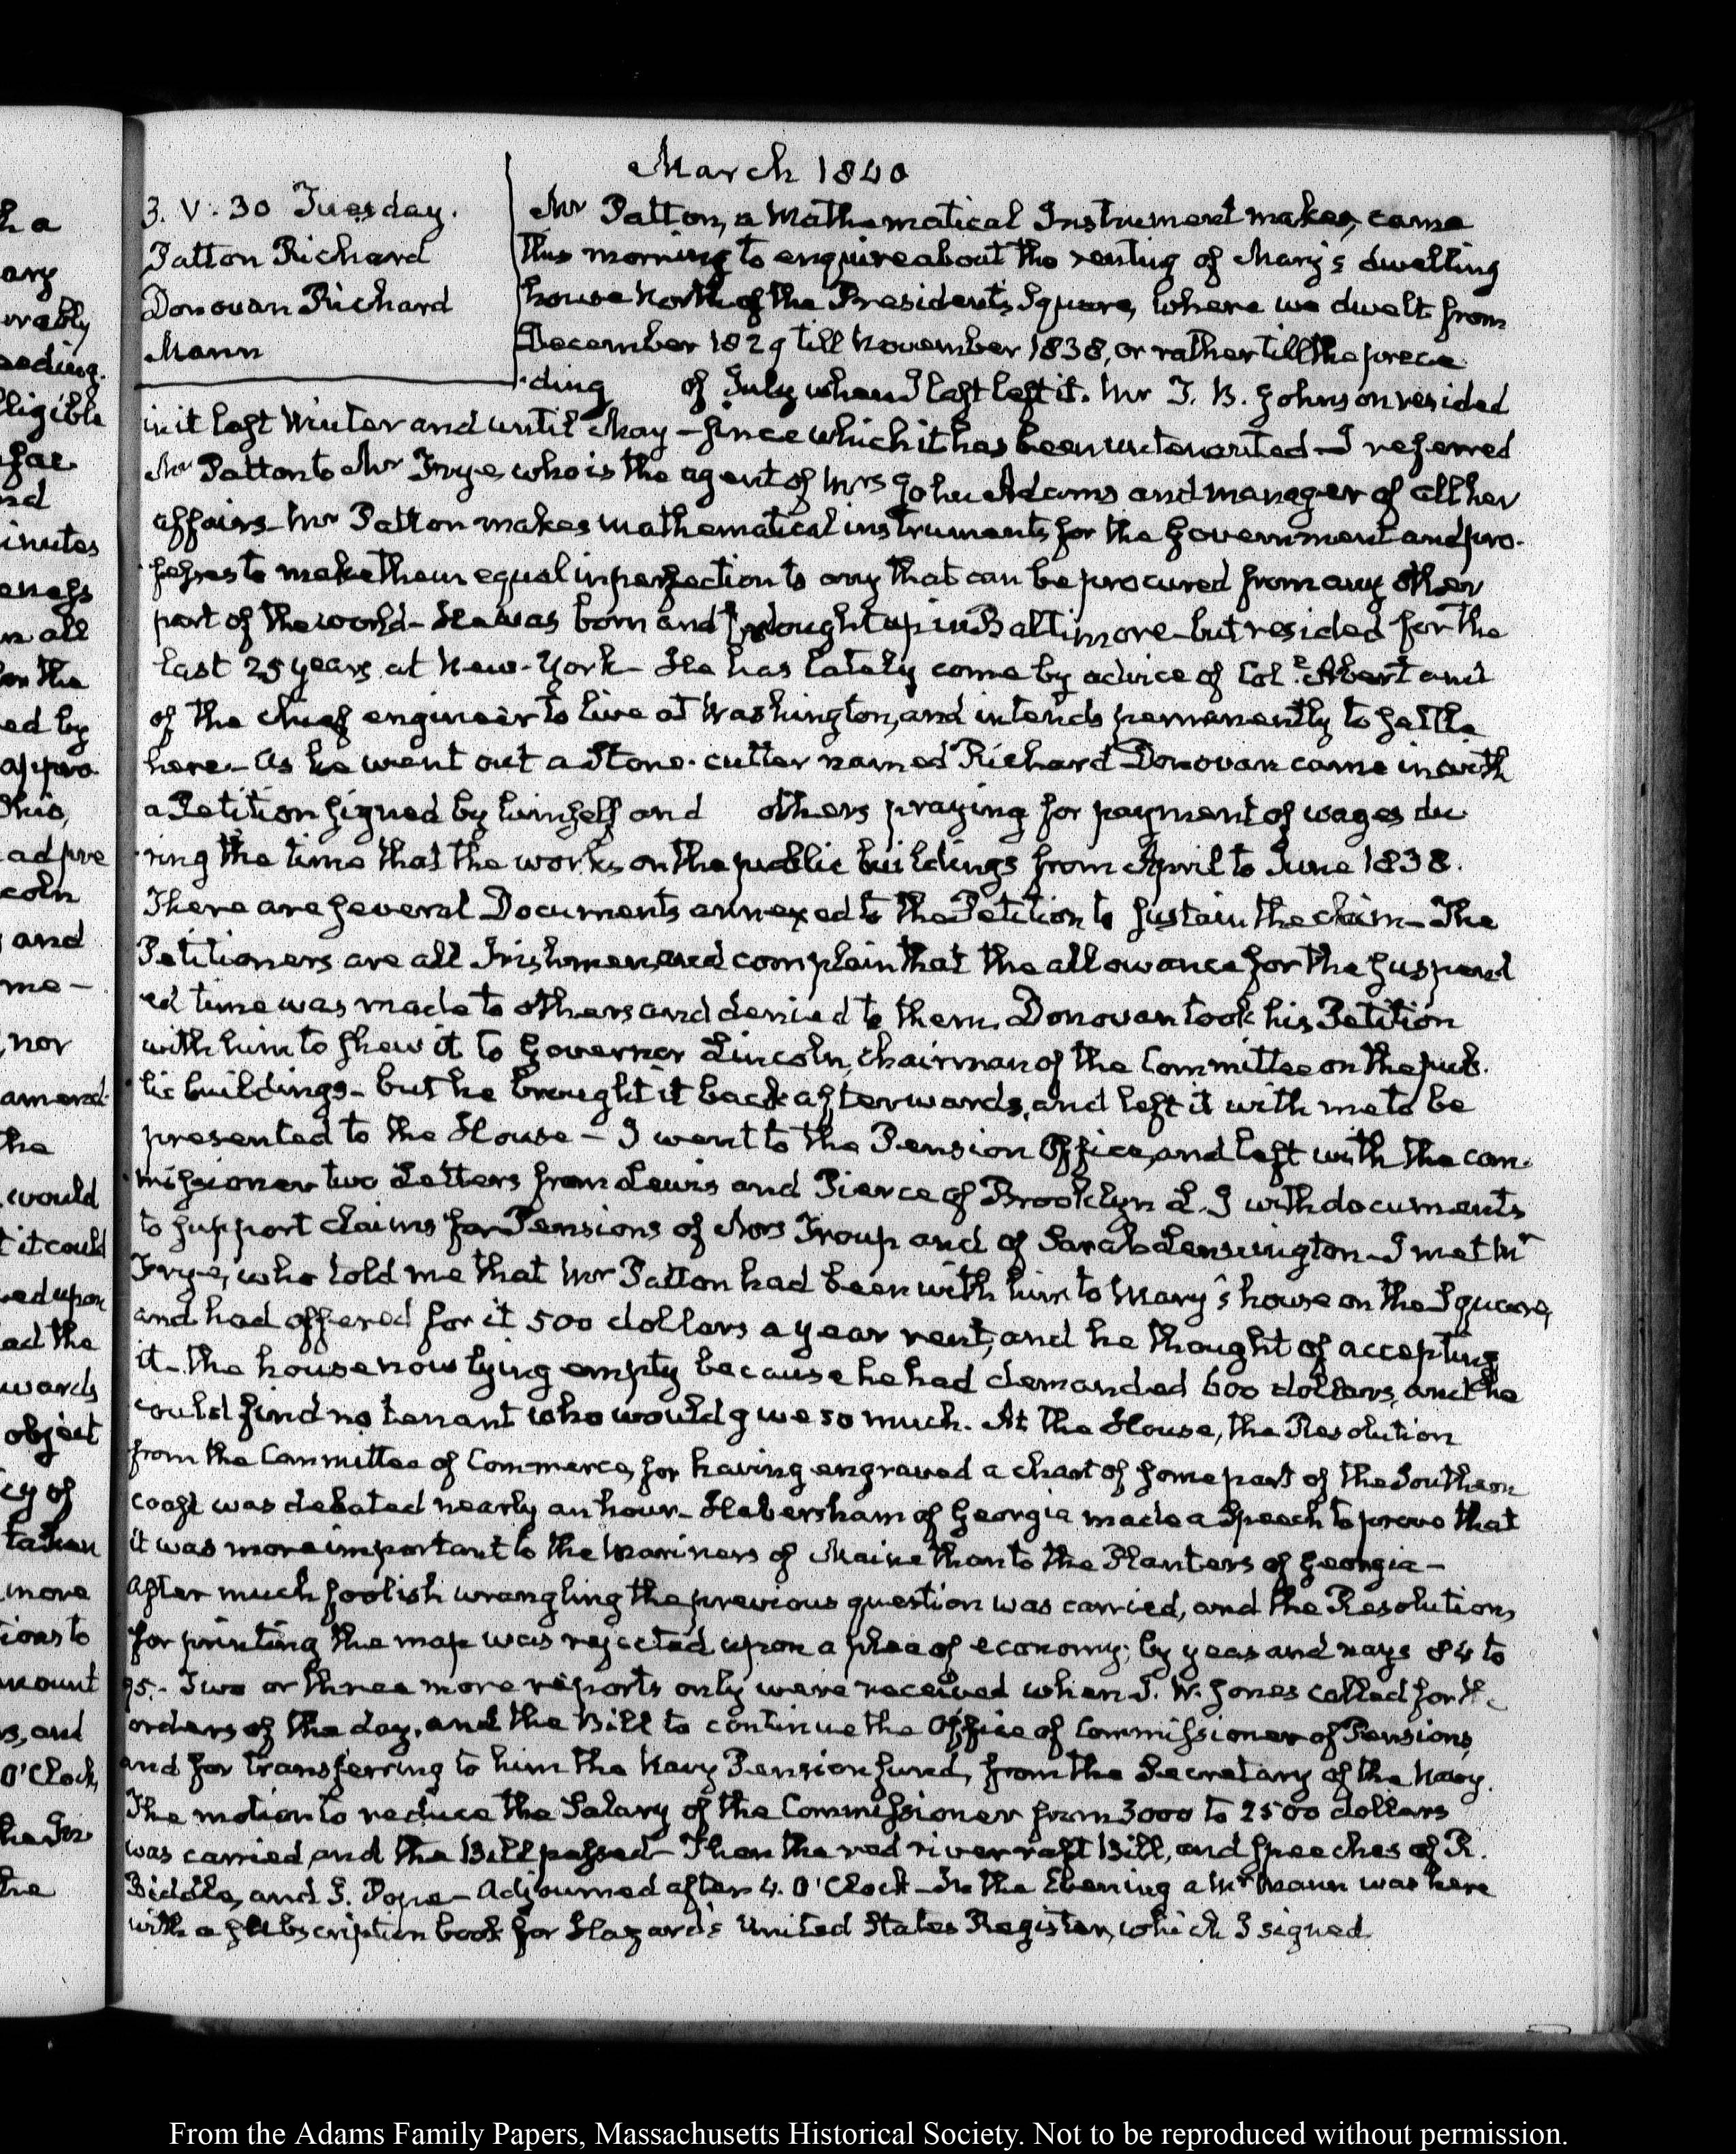 March 1840
3. V. 30 Tuesday.
Patton Richard
Donovan Richard
Mann
Mr Patton, a Mathematical Instrument maker, came
this morning to enquire about the renting of Mary's dwelling
house North of the President's Square, where we dwelt from
December 1829 till November 1838, or rather till the prece
ding of July when I last left it. Mr T. B. Johnson resided
in it last Winter and until May – since which it has been untenanted – I referred
Mr Patton to Mr Frye, who is the agent of Mrs John Adams and manager of all her
affairs – Mr Patton makes mathematical instruments for the Government and pro-
fesses to make them equal in perfection to any that can be procured from any other
part of the world – He was born and brought up in Baltimore – but resided for the
last 25 years at New-York – He has lately come by advice of Coll. Abert and
of the chief engineer to live at Washington, and intends permanently to settle
here – As he went out a Stone-cutter named Richard Donovan came in with
a Petition signed by himself and others praying for payment of wages du-
ring the time that the works on the public buildings from April to June 1838.
There are several Documents annexed to the Petition to sustain the claim – The
Petitioners are all Irishmen, and complain that the allowance for the suspend
ed time was made to others and denied to them. Donovan took his Petition
with him to shew it to Governor Lincoln, chairman of the Committee on the pub-
lic buildings – but he brought it back afterwards, and left it with me to be
presented to the House – I went to the Pension Office, and left with the com-
missioner two Letters from Lewis and Pierce of Brooklyn L. I with documents
to support claims for Pensions of Mrs Troup and of Sarah – I met Mr
Frye, who told me that Mr Patton had been with him to Mary's house on the Square,
and had offered for it 500 dollars a year rent, and he thought of accepting
it – the house now lying empty because he had demanded 600 dollars, and he
could find no tenant who would give so much. At the House, the Resolution
from the Committee of Commerce, for having engraved a chart of some part of the Southern
coast was debated nearly an hour – Habersham of Georgia made a Speech to prove that
it was more important to the Mariners of Maine than to the Planters of Georgia –
After much foolish wrangling the previous question was carried, and the Resolution,
for printing the map was rejected upon a plea of economy; by yeas and nays 84 to
95. – Two or three more reports only were received when J. W. Jones called for the
orders of the day, and the Bill to continue the Office of Commissioner of Pensions,
and for transferring to him the Navy Pension fund, from the Secretary of the Navy.
The motion to reduce the Salary of the Commissioner from 3000 to 2500 dollars
was carried, and the Bill passed – Then the red river raft Bill, and speeches of R.
Biddle, and J. Pope – Adjourned after 4. O'Clock – In the Evening a Mr Mann was here
with a subscription book for Hazard's United States Register, which I signed
h a
ary
erably
eeding.
lligible
nd
inutes
eness
in all
on the
ed by
appro
Ohio,
ad pre
coln
and
me –
nor
amend
the
would
t it could
ed upon
ad the
wards
object
cy of
more
tions to
mount
rs, and
O'Clock,
the
From the Adams Family Papers, Massachusetts Historical Society. Not to be reproduced without permission.